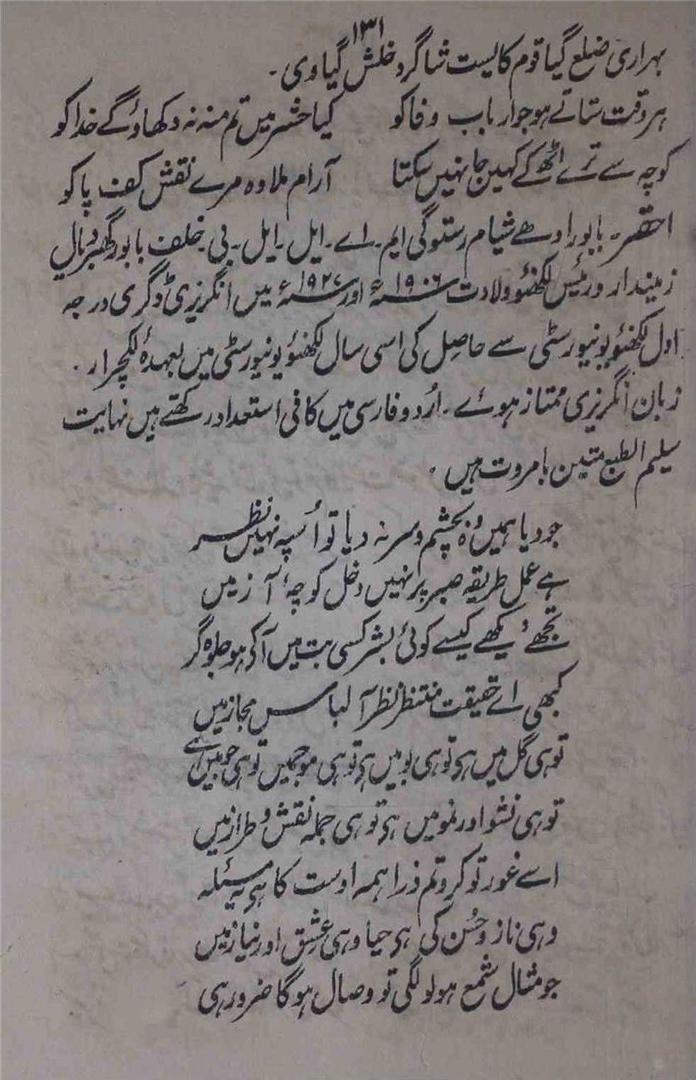 ۱۳۱
بہراری ضلع گیا قوم کالیست شاگرد خلش گیاوی۔
ہروقت ستاتے ہو جو ارباب وفا کو کیا حشر میں تم منہ نہ دکھاؤگے خدا کو
کوچہ سے ترے اٹھ کے کہین جا نہیں سکتا آرام ملا وہ مرے نقش کف پا کو
احقر۔ بابو رادھے شیام رستوگی ایم۔اے۔ایل۔ایل۔بی۔خلف بابو رگھبر دیال
زمیندار و رئیس لکھنؤ ولادت سنہ ۱۹۰۶ء اور سنہ ۱۹۲۷ء میں انگریزی ڈگری درجہ
اول لکھنؤ یونیورسٹی سے حاصل کی اسی سال لکھنؤ یونیورسٹی میں بعہدۂ لکچرار۔
زبان انگریزی ممتاز ہوئے۔ اردو فارسی میں کافی استعداد رکھتے ہیں نہایت
سلیم الطبع متین بامروت ہیں۔
جو دیا ہمیں وہ بچشم و سر نہ دیا تو اُسپہ نہیں نظر
ہے عمل طریقہ صبر پر نہیں دخل کوچۂ آز میں
تجھے دیکھے کیسے کوئی بشر کسی بت میں آکے ہو جلوہ گر
کبھی اے حقیقت منتظر نظر آ لباس مجاز میں
توہی گل میں ہی توہی بو میں ہی توہی موجمیں توہی جو میں ہے
توہی نشو اور نمو میں ہی توہی جملہ نقش و طراز میں
اسے غور تو کرو تم ذرا ہمہ اوست کا ہی یہ مسئلہ
وہی ناز و حسن کی ہی حیا وہی عشق اور نیاز میں
جو مثال شمع ہو لو لگی تو وصال ہوگا ضرور ہی